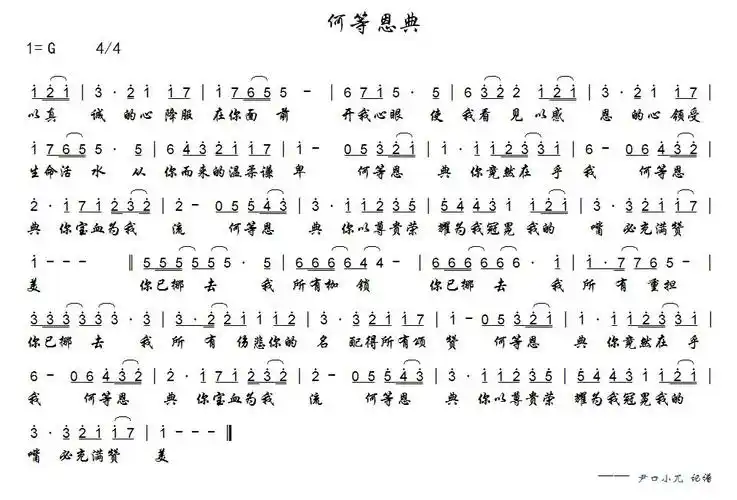 何等恩典
1= G 4/4
i 2 i | 3 · 2 i i 7 | i 7 6 5 5 5 - | 6 7 i 5 · 5 | 6 3 2 2 i 2 i | 3 · 2 i i 7 |
以真 诚 的心 降服 在你面 前 开我心眼 使 我看 见以感 恩 的心 领受
i 7 6 5 5 · 5 | 6 4 3 2 i i 7 | i - 0 5 3 2 i | i · i i 2 3 3 i | 6 - 0 6 4 3 2 |
生命活 水 从 你而来的温柔谦 卑 何等恩 典 你竟然在 乎 我 何等恩
2 · i 7 i 2 3 2 | 2 - 0 5 5 4 3 | 3 · i i 2 3 5 | 5 4 4 3 i i 2 i | 3 · 3 2 i i 7 |
典 你宝血为我 流 何等恩 典 你以尊贵荣 耀为我冠冕 我的 嘴 必充满赞
i - - - ‖ 5 5 5 5 5 5 · 5 | 6 6 6 6 4 4 - | 6 6 6 6 6 6 · i | i · 7 7 6 5 · |
美 你已挪 去 我 所有枷 锁 你已挪 去 我 所 有 重担
3 3 3 3 3 3 · 3 | 3 · 2 2 i i i 2 | 3 · 2 i i i 7 | i - 0 5 3 2 i | i · i i 2 3 3 i |
你已挪 去 我 所 有 伤悲你的 名 配得所有颂 赞 何等恩 典 你竟然在 乎
6 - 0 6 4 3 2 | 2 · i 7 i 2 3 2 | 2 - 0 5 5 4 3 | 3 · i i 2 3 5 | 5 4 4 3 i i 2 i |
我 何等恩 典 你宝血为我 流 何等恩 典 你以尊贵荣 耀为我冠冕我的
3 · 3 2 i i 7 | i - - - ‖
嘴 必充满赞 美
—— 尹口小兀 记谱